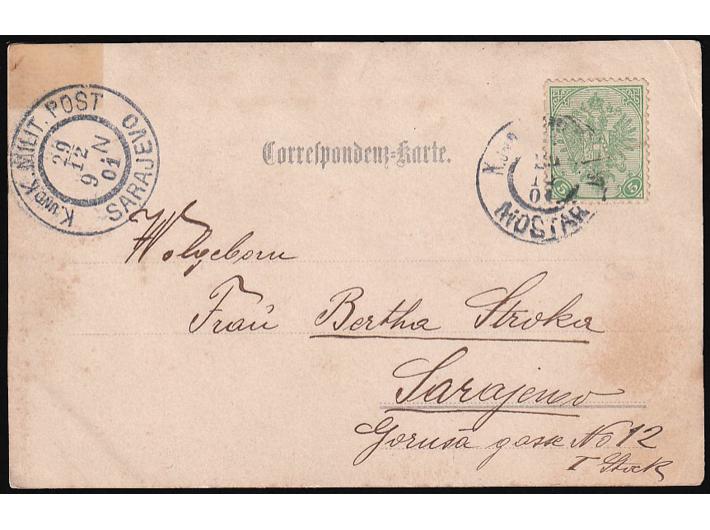 K. UND K. MILIT. POST SARAJEVO
29
12
9 N
01
Correspondenz-Karte.
MOSTAR
5 5
Wolgeborn
Frau Bertha Stroka
Sarajevo
Gorusa gasse No 12
I Stock